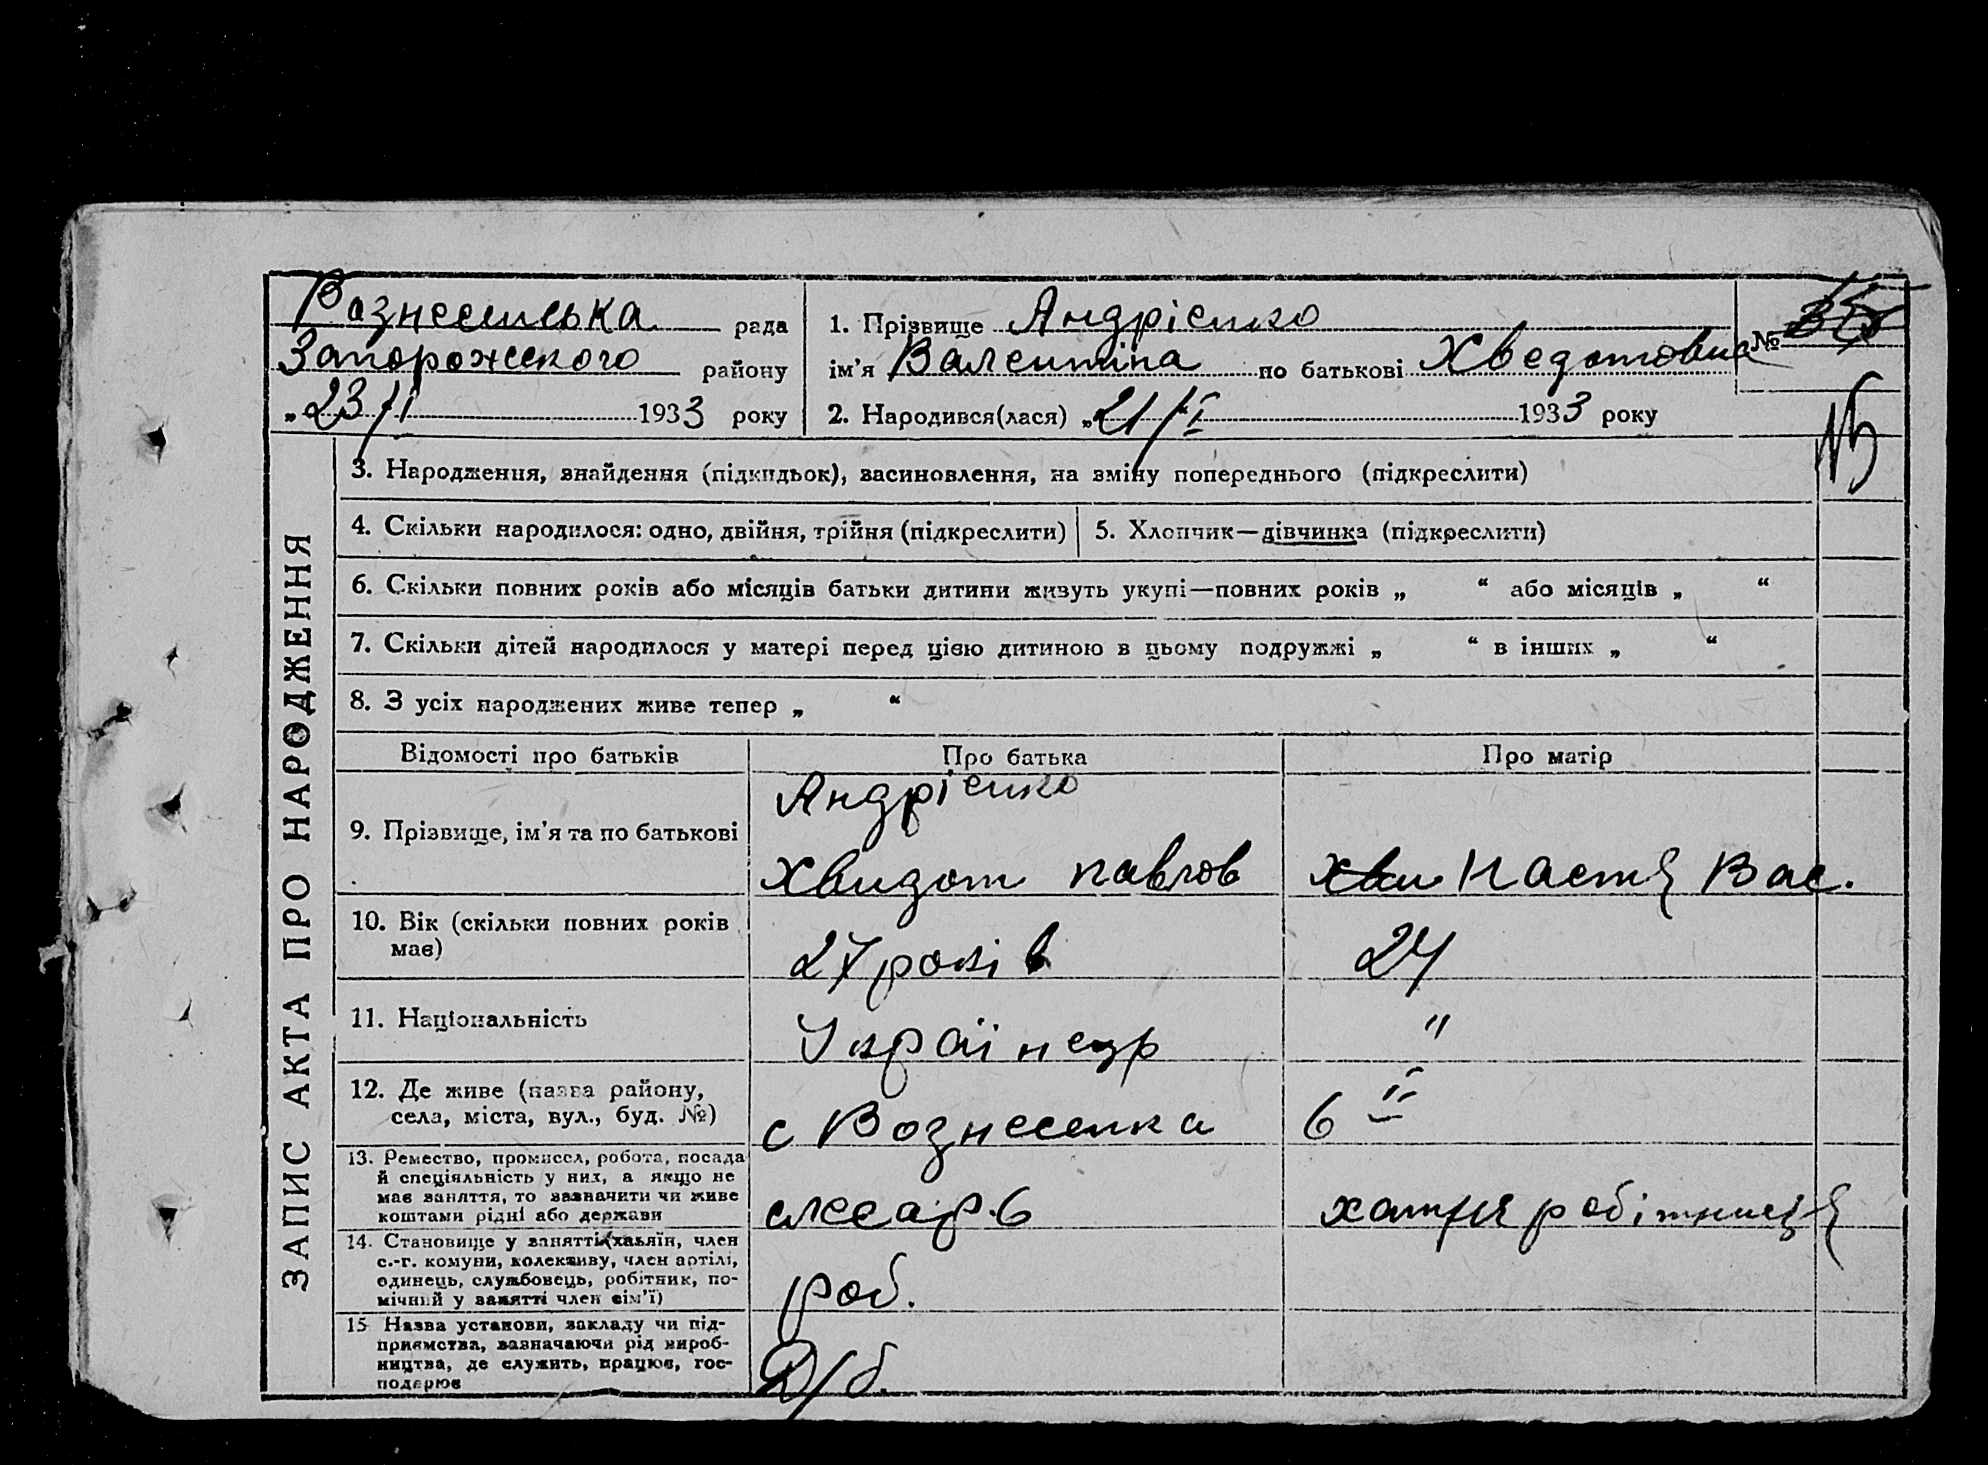 Вознесенська рада
Запорожского району
„23/I 1933 року
1. Прізвище Андрієнко
ім'я Валентіна по батькові Хведотовна
№
2. Народився(лася) „21/I 1933 року
15
ЗАПИС АКТА ПРО НАРОДЖЕННЯ
3. Народження, знайдення (підкидьок), засиновлення, на зміну попереднього (підкреслити)
4. Скільки народилося: одно, двійня, трійня (підкреслити)
5. Хлопчик—дівчинка (підкреслити)
6. Скільки повних років або місяців батьки дитини живуть укупі—повних років „ “ або місяців „ “
7. Скільки дітей народилося у матері перед цією дитиною в цьому подружжі „ “ в інших „ “
8. З усіх народжених живе тепер „ “
Відомості про батьків
Про батька
Про матір
9. Прізвище, ім'я та по батькові
Андрієнко
Хвидот павлов
Настя Вас.
10. Вік (скільки повних років
має)
27 років
24
11. Національність
Українець
"
12. Де живе (назва району,
села, міста, вул., буд. №)
с Вознесенка
"
13. Ремество, промисел, робота, посада
й спеціяльність у них, а якщо не
має заняття, то зазначити чи живе
коштами рідні або держави
слесарь
хатня робітниця
14. Становище у занятті (хазяїн, член
с.-г. комуни, колективу, член артілі,
одинець, службовець, робітник, по-
мічний у занятті член сім'ї)
роб.
15 Назва установи, закладу чи під-
приємства, зазначаючи рід вироб-
ництва, де служить, працює, гос-
подарює
Д/б.